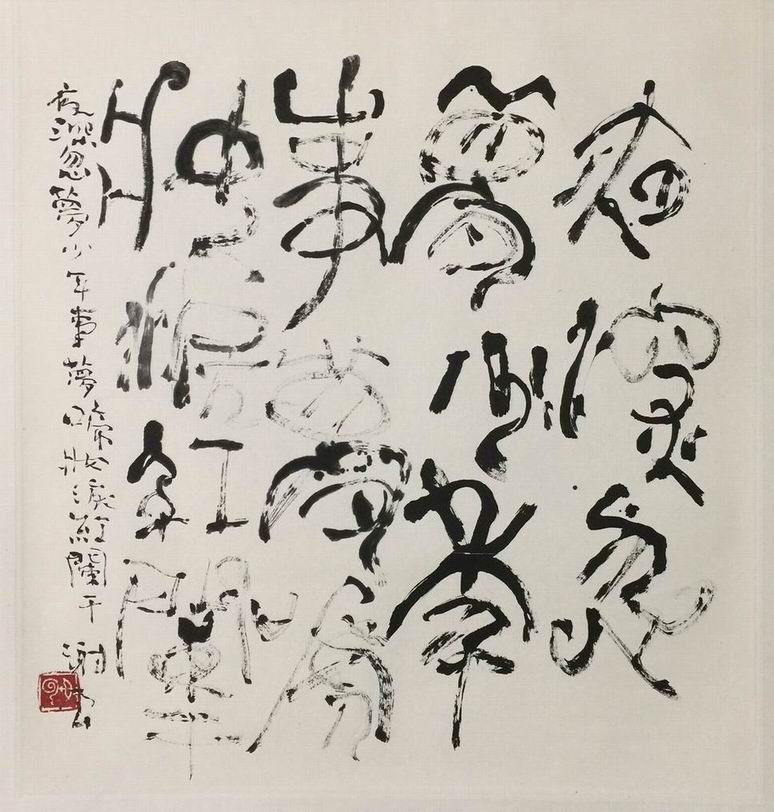 夜深忽
夢少年
事夢啼
妝淚紅闌干
夜深忽夢少年事夢啼妝淚紅闌干 謝云